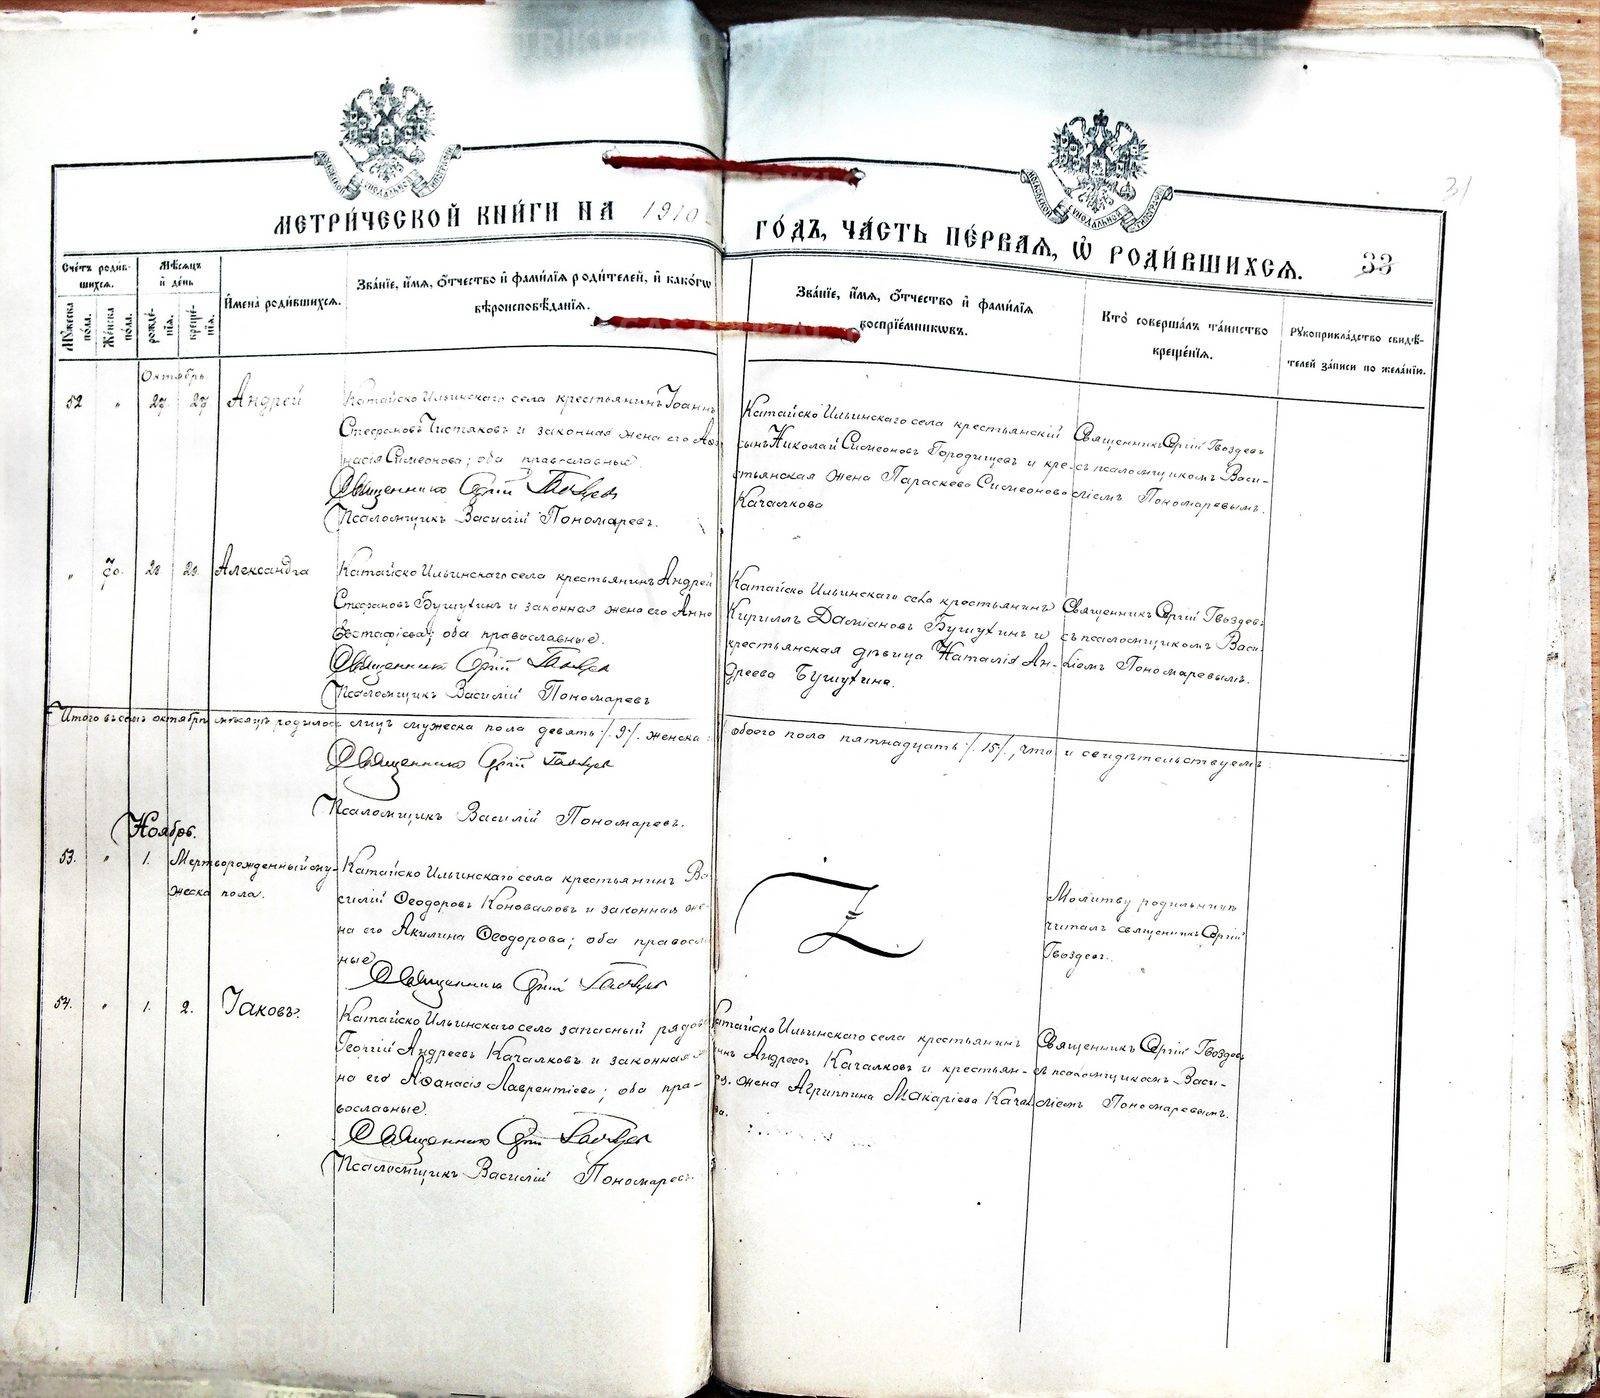 31
МЕТРИ́ЧЕСКОЙ КНИ́ГИ НА 1910
ГО́ДЪ, ЧА́СТЬ ПЕ́РВАЯ, Ѡ РОДИ́ВШИХСЯ.
33
Сче́тъ роди́в-
шихся.
Мѣ́сяцъ
и҆ де́нь
Мꙋ́жеска
по́ла.
Же́нска
по́ла.
рожде́-
нїя.
креще́-
нїя.
И҆мена̀ роди́вшихся.
Зва́нїе, и҆́мя, ѻ҆́тчество и҆ фами́лїя роди́телей, и҆ како́гѡ
вѣроисповѣ́данїя.
Зва́нїе, и҆́мя, ѻ҆́тчество и҆ фами́лїя
воспрїе́мникѡвъ.
Кто̀ соверша́лъ та́инство
креще́нїя.
Рꙋкоприкла́дство свидѣ́-
телей за́писи по жела́нїю.
Октябрь
52 " 27. 27 Андрей
Катайско Ильинскаго села крестьянинъ Іоаннъ
Стефановъ Чистяковъ и законная жена его Аѳа
насія Симеонова; оба православные.
Священникъ Сергій Гвоздевъ
Псаломщикъ Василій Пономаревъ.
Катайско Ильинскаго села крестьянскій
сынъ Николай Симеоновъ Городищевъ и кре-
стьянская жена Параскева Симеонова
Качалкова
Священникъ Сергій Гвоздевъ
съ псаломщикомъ Васи-
ліемъ Пономаревымъ.
" 28. 28. Александра
Катайско Ильинскаго села крестьянинъ Андрей
Стефановъ Бушухинъ и законная жена его Анна
Евстафіева; оба православные.
Священникъ Сергій Гвоздевъ
Псаломщикъ Василій Пономаревъ
Катайско Ильинскаго села крестьянинъ
Кириллъ Даміановъ Бушухинъ и
крестьянская дѣвица Наталія Ан-
дреева Бушухина.
Священникъ Сергій Гвоздевъ
съ псаломщикомъ Васи-
ліемъ Пономаревымъ.
Итого въ семъ октябрѣ мѣсяцѣ родилось лицъ мужеска пола девять /9/. женска
обоего пола пятнадцать /15/., что и свидѣтельствуемъ:
Священникъ Сергій Гвоздевъ
Псаломщикъ Василій Пономаревъ.
Ноябрь.
53. " 1. Мертворожденный му-
жеска пола.
Катайско Ильинскаго села крестьянинъ Ва-
силій Ѳеодоровъ Коноваловъ и законная же-
на его Акилина Ѳеодорова; оба правосла
ные
Священникъ Сергій Гвоздевъ
Молитву родильницѣ
читалъ священникъ Сергій
Гвоздевъ.
54. " 1. 2. Іаковъ.
Катайско Ильинскаго села запасный рядовой
Георгій Андреевъ Качалковъ и законная же
на его Аѳанасія Лаврентіева; оба пра-
вославные.
Священникъ Сергій Гвоздевъ
Псаломщикъ Василій Пономаревъ
Катайско Ильинскаго села крестьянинъ
Андреевъ Качалковъ и крестьян-
жена Агриппина Макаріева Качал
ва.
Священникъ Сергій Гвоздевъ
съ псаломщикомъ Васи-
ліемъ Пономаревымъ.